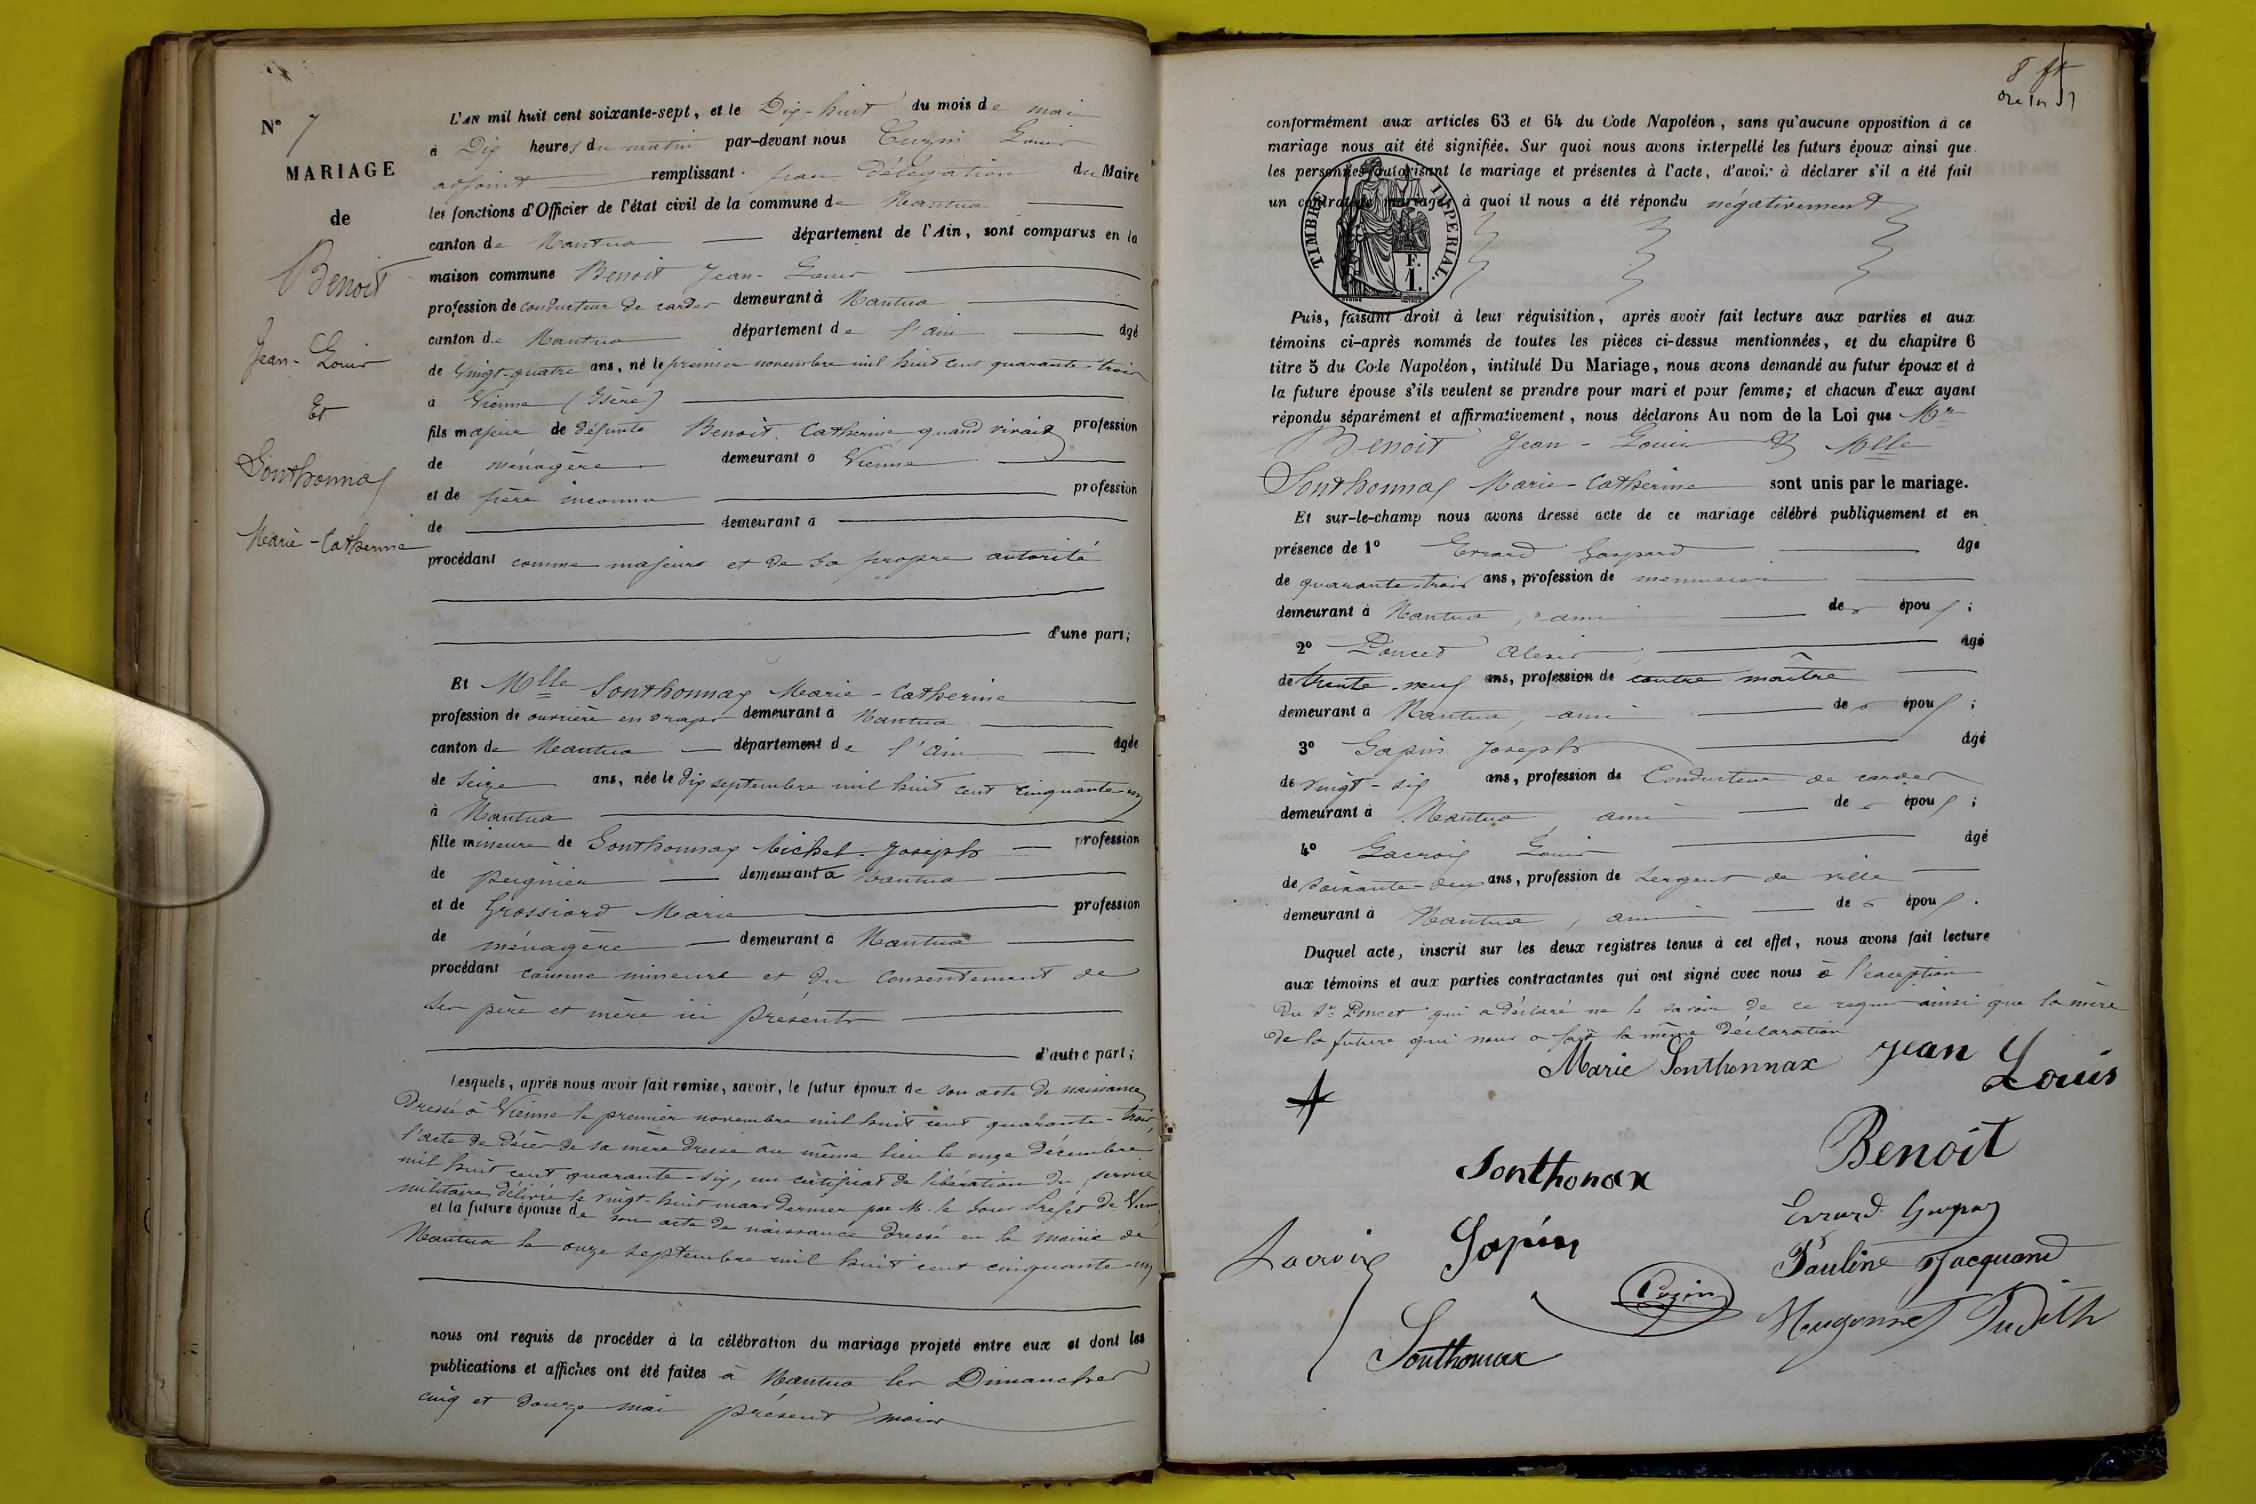 N° 7
MARIAGE
de
Benoit
Jean-Louis
Et
Sonthonnax
Marie-Catherine
L'AN mil huit cent soixante-sept, et le Dix-huit du mois de mai
à Dix heures du matin par-devant nous Cuzin Louis
adjoint remplissant par délégation du Maire
les fonctions d'Officier de l'état civil de la commune de Nantua
canton de Nantua département de l'Ain, sont comparus en la
maison commune Benoit Jean-Louis
profession de conducteur de cardes demeurant à Nantua
canton de Nantua département de l'ain âgé
de vingt-quatre ans, né le premier novembre mil huit cent quarante-trois
à Vienne (Isère)
fils majeur de défunte Benoit Catherine quand vivait profession
de ménagère demeurant à Vienne
et de père inconnu profession
de demeurant à
procédant comme majeur et de sa propre autorité
d'une part;
Et Mlle Sonthonnax Marie-Catherine
profession de ouvrière en draps demeurant à Nantua
canton de Nantua département de l'ain âgée
de seize ans, née le dix septembre mil huit cent cinquante-un
à Nantua
fille mineure de Sonthonnax Michel-Joseph profession
de peignier demeurant à Nantua
et de Grossiord Marie profession
de ménagère demeurant à Nantua
procédant comme mineure et du consentement de
ses père et mère ici présents
d'autre part;
Lesquels, après nous avoir fait remise, savoir, le futur époux de son acte de naissance
dressé à Vienne le premier novembre mil huit cent quarante-trois,
l'acte de décès de sa mère dressé au même lieu le onze décembre
mil huit cent quarante-six, un certificat de libération du service
militaire délivré le vingt-huit mars dernier par M. le Sous Préfet de Vienne
et la future épouse de son acte de naissance dressé en la mairie de
Nantua le onze septembre mil huit cent cinquante-un
nous ont requis de procéder à la célébration du mariage projeté entre eux et dont les
publications et affiches ont été faites à Nantua les Dimanches
cinq et douze mai présent mois
8
conformément aux articles 63 et 64 du Code Napoléon, sans qu'aucune opposition à ce
mariage nous ait été signifiée. Sur quoi nous avons interpellé les futurs époux ainsi que
les personnes autorisant le mariage et présentes à l'acte, d'avoir à déclarer s'il a été fait
un contrat de mariage, à quoi il nous a été répondu négativement
TIMBRE IMPERIAL.
F. 1.
Puis, faisant droit à leur réquisition, après avoir fait lecture aux parties et aux
témoins ci-après nommés de toutes les pièces ci-dessus mentionnées, et du chapitre 6
titre 5 du Code Napoléon, intitulé Du Mariage, nous avons demandé au futur époux et à
la future épouse s'ils veulent se prendre pour mari et pour femme; et chacun d'eux ayant
répondu séparément et affirmativement, nous déclarons Au nom de la Loi que Mr
Benoit Jean-Louis & Mlle
Sonthonnax Marie-Catherine sont unis par le mariage.
Et sur-le-champ nous avons dressé acte de ce mariage célébré publiquement et en
présence de 1° Errard Gaspard âgé
de quarante-trois ans, profession de menuisier
demeurant à Nantua, ami des époux;
2° Poncet Alexis, âgé
de trente-neuf ans, profession de contre maître
demeurant à Nantua, ami des époux;
3° Gapin Joseph âgé
de vingt-six ans, profession de Conducteur de cardes
demeurant à Nantua, ami des époux;
4° Lacroix Louis âgé
de soixante-deux ans, profession de sergent de ville
demeurant à Nantua, ami des époux.
Duquel acte, inscrit sur les deux registres tenus à cet effet, nous avons fait lecture
aux témoins et aux parties contractantes qui ont signé avec nous à l'exception
du Sr Poncet qui a déclaré ne le savoir de ce requis ainsi que la mère
de la future qui nous a fait la même déclaration
Marie Sonthonnax Jean Louis
Benoit
Sonthonax
Errard Gaspar
Lacroix
Gapin
Pauline Jacquand
Cuzin
Mougonnet Judith
Sonthonnax